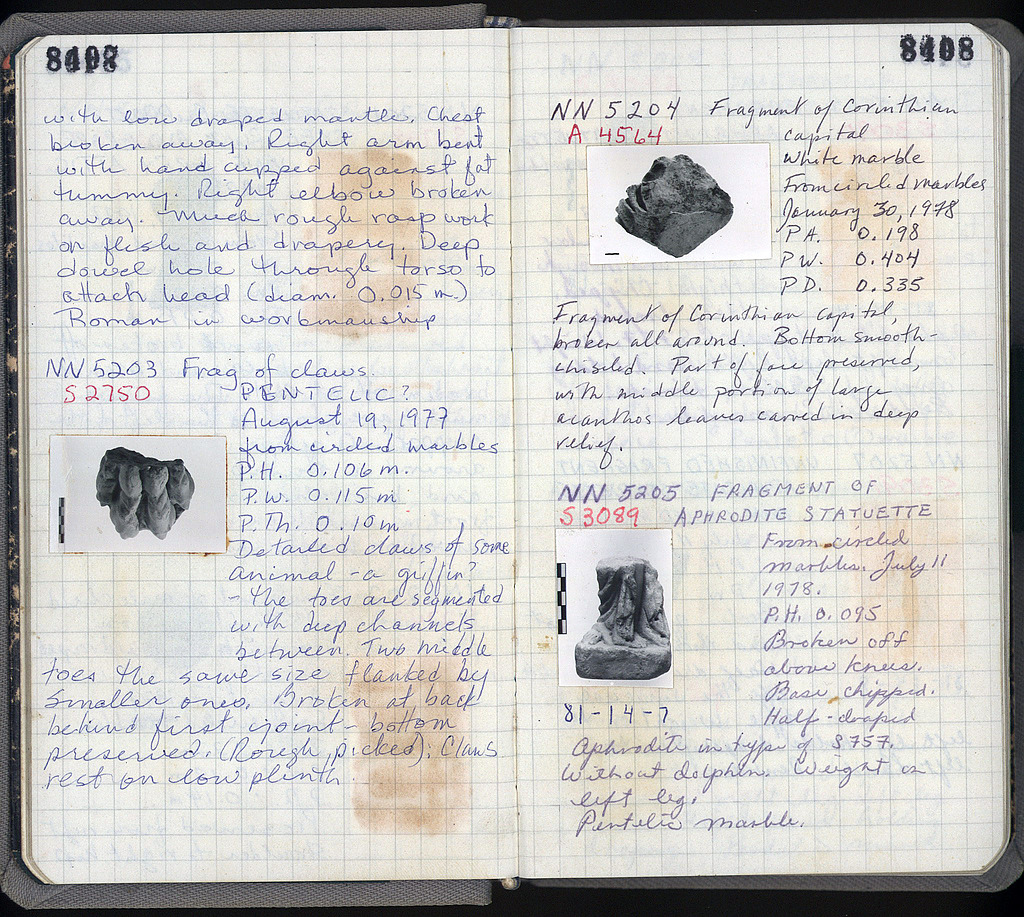 8408
with low draped mantle. Chest
broken away. Right arm bent
with hand cupped against fat
tummy. Right elbow broken
away. Much rough rasp work
on flesh and drapery. Deep
dowel hole through torso to
attach head (diam. 0.015 m.)
Roman in workmanship
NN 5203 Frag of claws.
S2750 PENTELIC?
August 19, 1977
from circled marbles
P.H. 0.106 m.
P.W. 0.115 m
P.Th. 0.10 m
Detailed claws of some
animal - a griffin?
- the toes are segmented
with deep channels
between. Two middle
toes the same size flanked by
smaller ones. Broken at back
behind first joint - bottom
preserved. (Rough picked). Claws
rest on low plinth.
8408
NN 5204 Fragment of Corinthian
A 4564 capital
White marble
From circled marbles
January 30, 1978
P.H. 0.198
P.W. 0.404
P.D. 0.335
Fragment of Corinthian capital,
broken all around. Bottom smooth-
chiseled. Part of face preserved,
with middle portion of large
acanthos leaves carved in deep
relief.
NN 5205 FRAGMENT OF
S3089 APHRODITE STATUETTE
From circled
marbles. July 11
1978.
P.H. 0.095
Broken off
above knees.
Base chipped.
81-14-7 Half-draped
Aphrodite in type of S757.
Without dolphin. Weight on
left leg.
Pentelic marble.